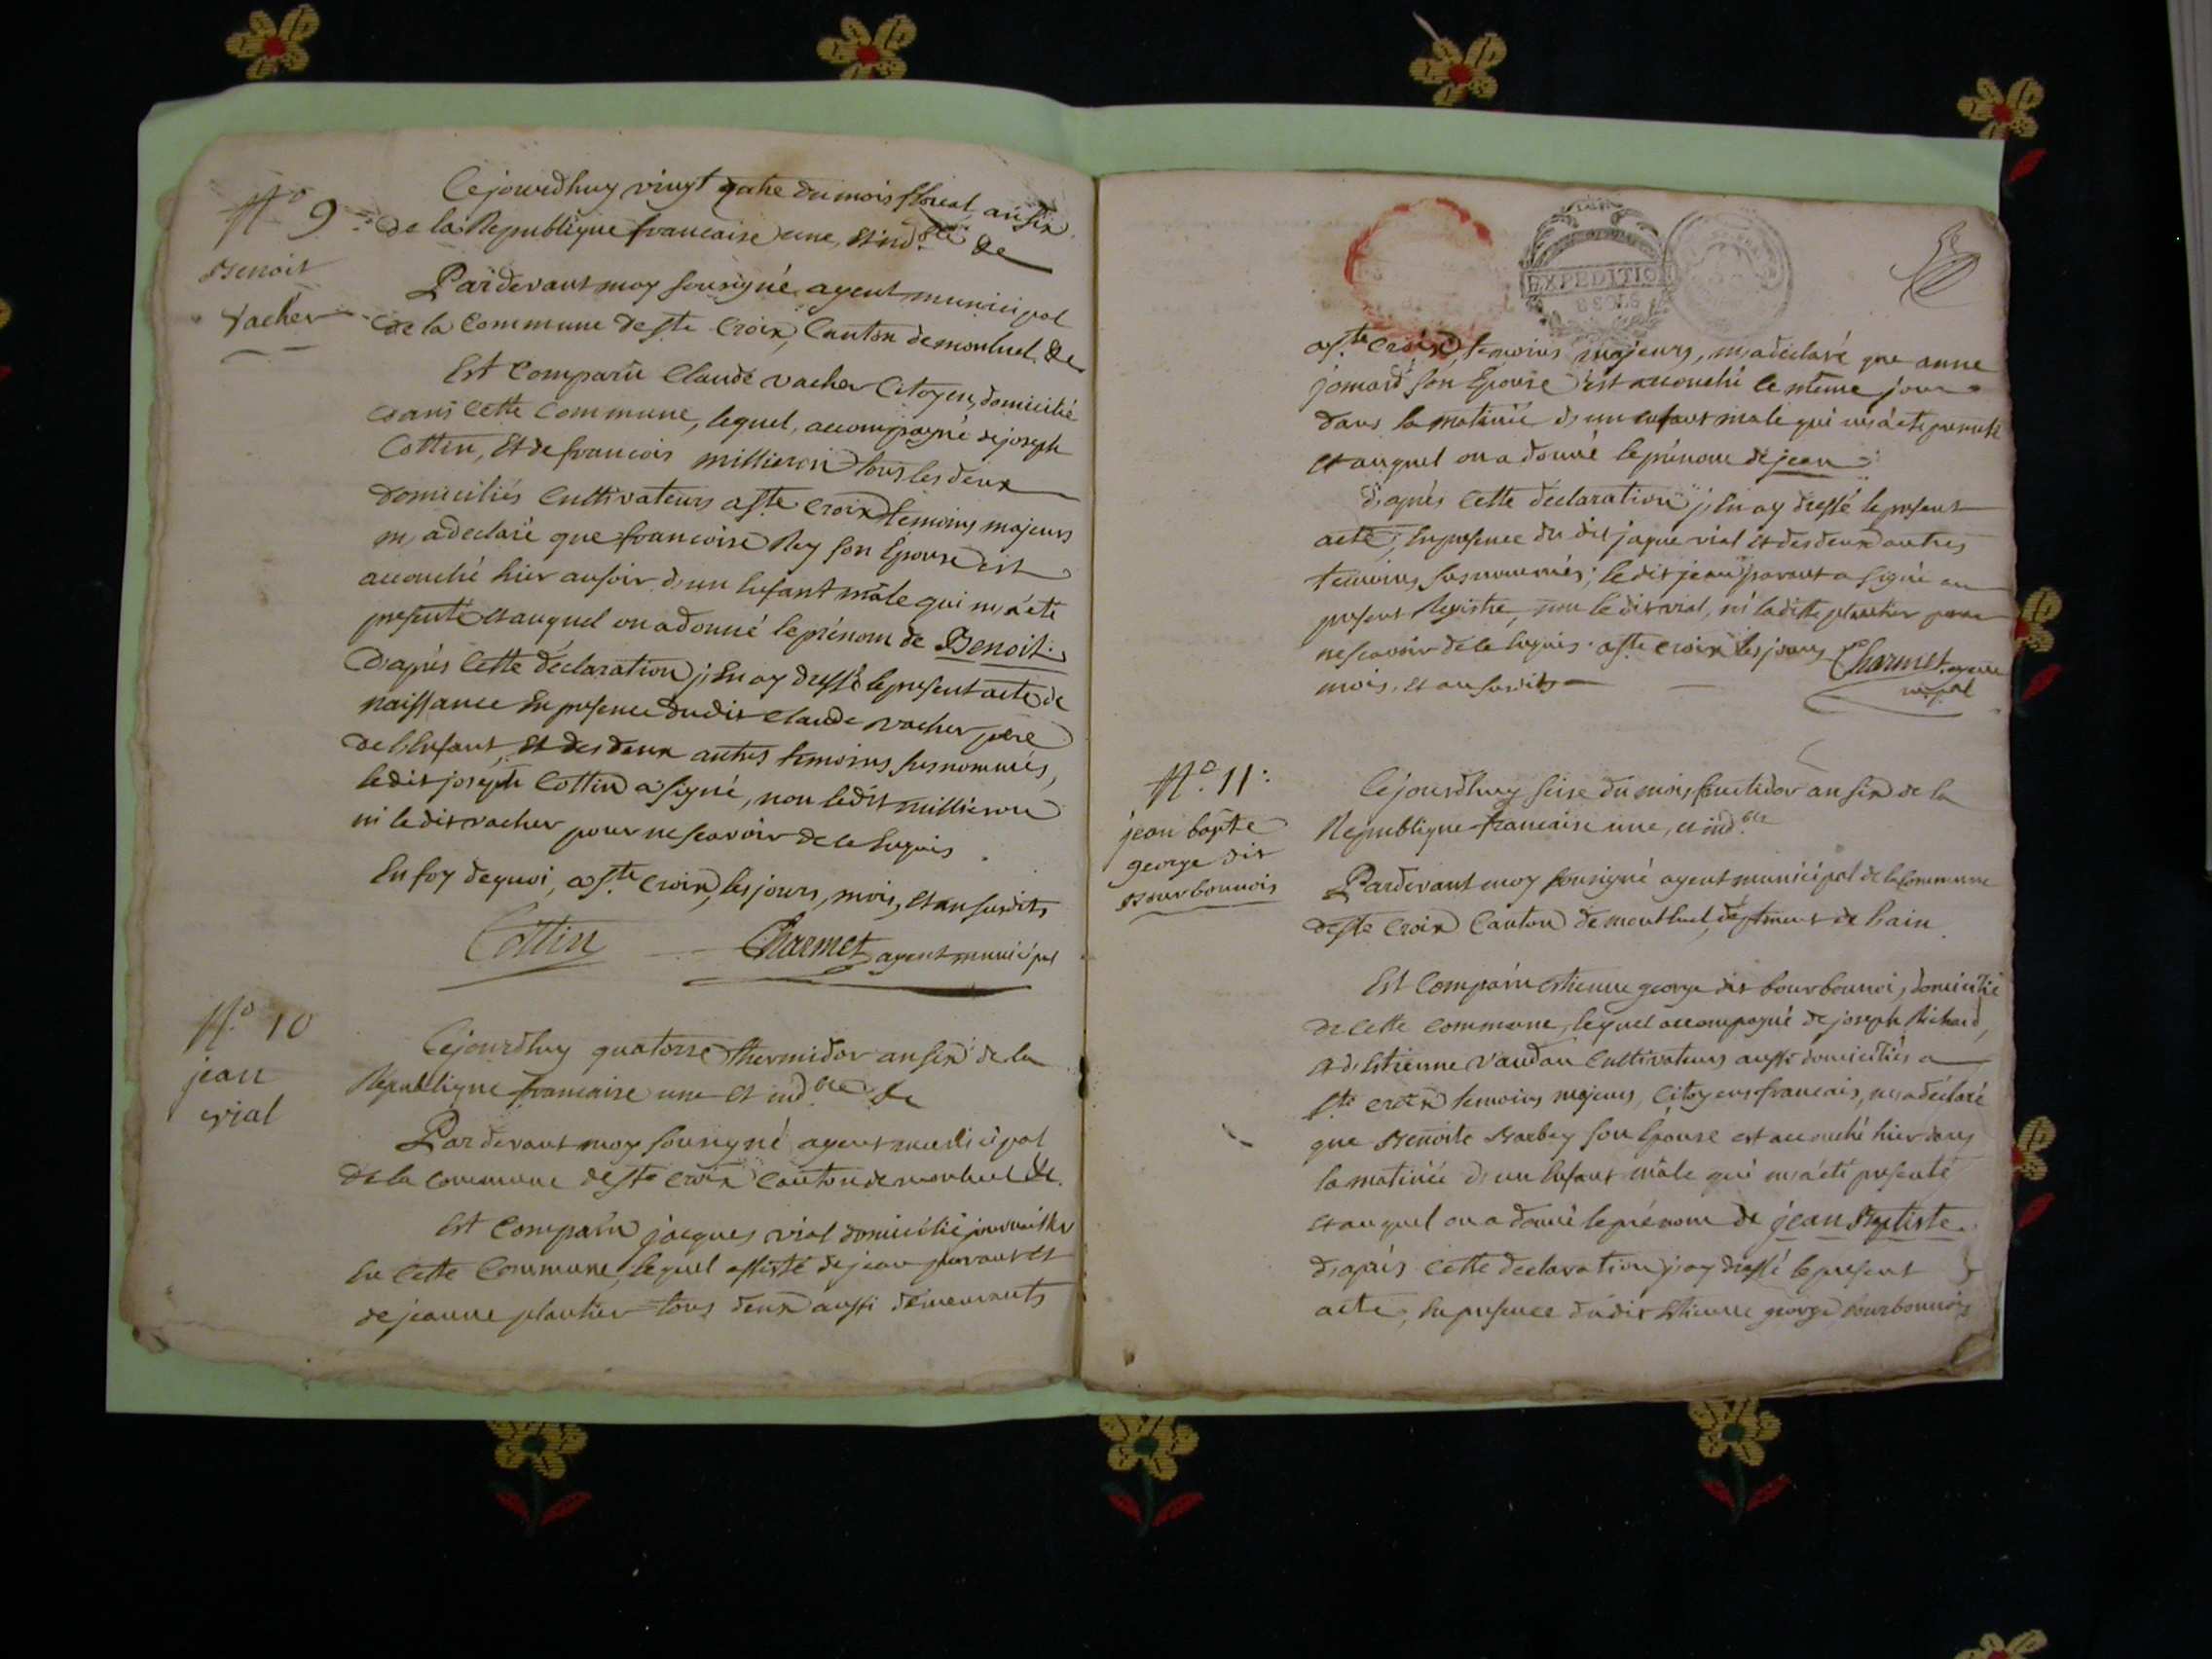 N.o 9
Benoit
Vacher
Cejourdhuy vingt quatre du mois floreal, an six
de la Republique francaise une, et ind.ble &c
Pardevant moy sousigné agent municipal
de la commune de ste Croix, Canton de montluel &c
Est Comparu Claude vacher Citoyen, domicilié
dans cette Commune, lequel, accompagné de joseph
Cottin, et de francois millieron tous les deux
domiciliés Cultivateurs a ste Croix temoins majeurs
m, a declaré que francoise Rey son Epouse est
accouché hier au soir d, un Enfant mâle qui m, a été
presenté et auquel on a donné le prénom de Benoit.
D'aprés cette déclaration j, En ay dressé le present acte de
naissance En presence dudit Claude vacher pere
de l'Enfant, et des deux autres temoins susnommés,
ledit joseph Cottin a signé, non ledit millieron
ni le dit vacher pour ne scavoir de ce Enquis.
En foy de quoi, a ste Croix, les jours, mois, et an susdits
Cottin Charmet agent municipal
N.o 10
jean
vial
Cejourdhuy quatorse thermidor an six de la
Republique francaise une et ind.ble &c
Pardevant moy sousigné agent municipal
de la commune de ste Croix Canton de montluel &c.
Est Comparu jacques vial domicilié journailler
En cette Commune, lequel assisté de jean pavant et
de jeanne plantier tous deux aussi demeurants
EXPEDITION
8 SOLS
a ste Croix, temoins majeurs, m, a déclaré que anne
jomard son Epouse est accouché le même jour
dans la matinée d, un enfant male qui m, a été presenté
et auquel on a donné le prénom de jean.
d, aprés cette declaration, j, En ay dressé le present
acte, En presence du dit jaque vial et des deux autres
temoins susnommés; le dit jean pavant a signé au
present Registre, non le dit vial, ni la ditte plantier pour
ne scavoir de ce Enquis. a ste Croix les jours
mois, et an susdits
Charmet agent
mpal
N.o 11:
jean bapte
george dit
Bourbonnois
Cejourdhuy seise du mois fructidor an six de la
Republique francaise une, et ind.ble
Pardevant moy sousigné agent municipal de la Commune
de ste Croix Canton de montluel, deptment de Lain.
Est Comparu estienne george dit bourbonnoi, domicilié
de cette commune, lequel accompagné de joseph Richard,
et d, Estienne vaudan Cultivateurs aussi domiciliés a
ste Croix temoins majeurs, Citoyens francais, m, a déclaré
que Benoite Barbey son Epouse est accouché hier dans
la matinée d, un Enfant mâle qui m, a été presenté
et auquel on a donné le prénom de jean Baptiste.
d, aprés cette declaration j, ay dressé le present
acte, En presence du dit Estienne george bourbonnois